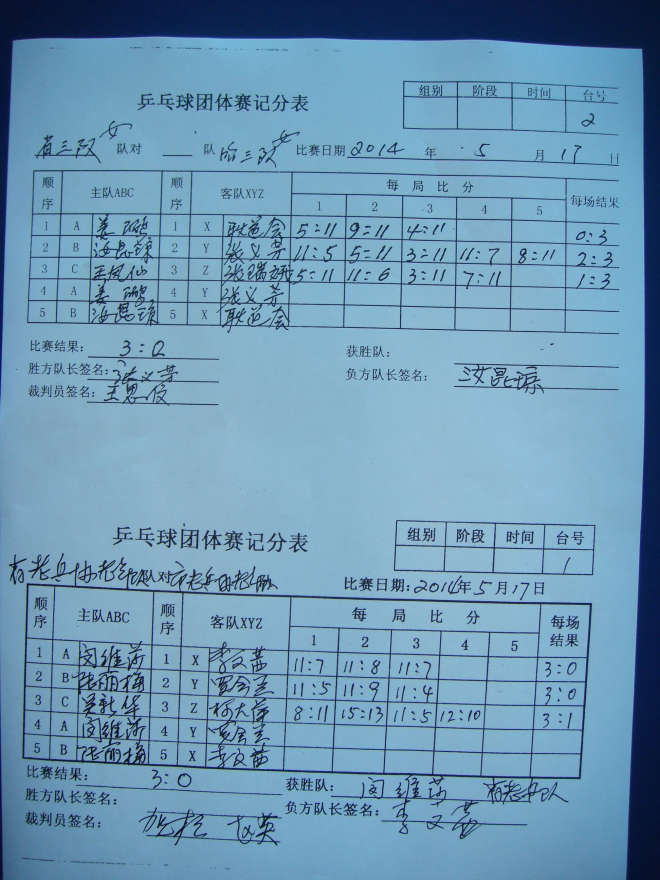 组别 阶段 时间 台号
乒乓球团体赛记分表
2
省三队女 队对 队 哈三队女 比赛日期 2014 年 5 月 17 日
顺序 主队ABC 顺序 客队XYZ 每局比分 每场结果
1 2 3 4 5
1 A 姜 1 X 耿莲会 5=11 9=11 4=11 0:3
2 B 汝昆琼 2 Y 张义芳 11:5 5=11 3=11 11:7 8=11 2=3
3 C 王凤仙 3 Z 张瑞娥 5=11 11=6 3=11 7=11 1=3
4 A 姜 4 Y 张义芳
5 B 汝昆琼 5 X 耿莲会
比赛结果: 3:0 获胜队:
胜方队长签名: 张义芳 负方队长签名: 汝昆琼
裁判员签名: 王思
组别 阶段 时间 台号
乒乓球团体赛记分表
1
队对 比赛日期: 2014年5月17日
顺序 主队ABC 顺序 客队XYZ 每局比分 每场结果
1 2 3 4 5
1 A 闵维莎 1 X 李文茜 11:7 11:8 11:7 3:0
2 B 张丽梅 2 Y 贾会兰 11:5 11:9 11:4 3:0
3 C 吴新华 3 Z 8:11 15=13 11:5 12:10 3:1
4 A 闵维莎 4 Y 贾会兰
5 B 张丽梅 5 X 李文茜
比赛结果: 3:0 获胜队: 闵维莎
胜方队长签名: 负方队长签名: 李文茜
裁判员签名: